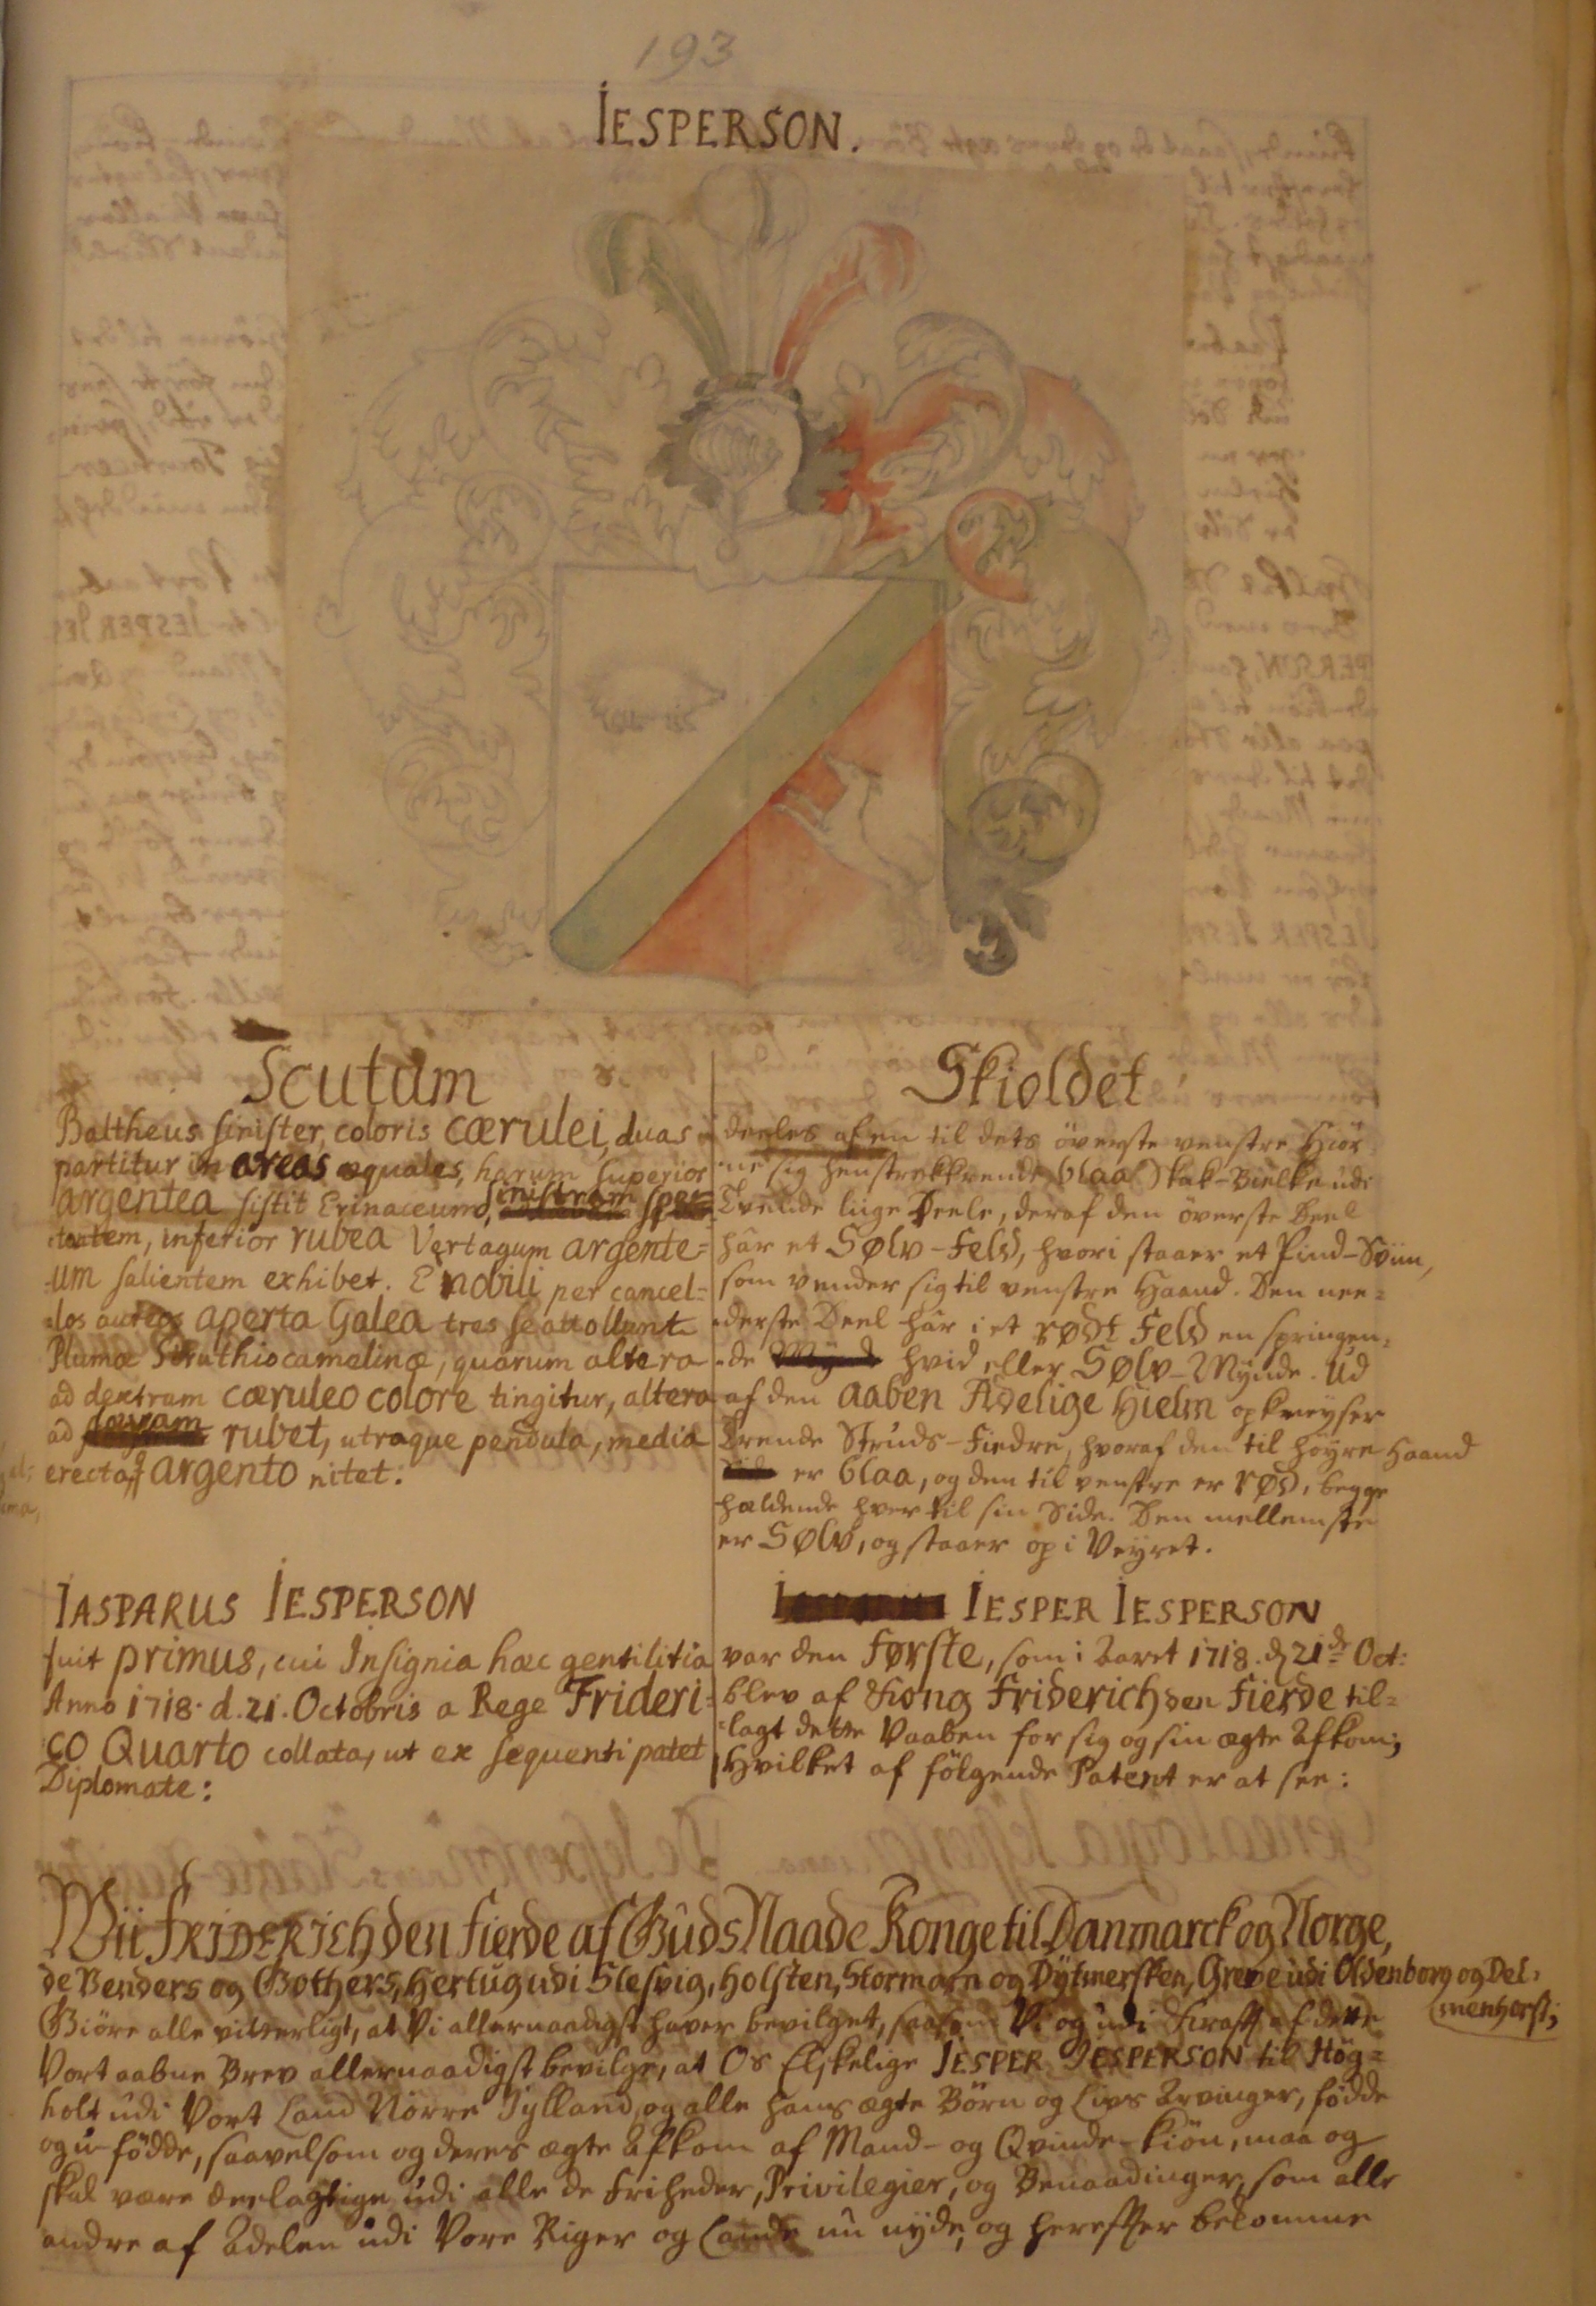 193
IESPERSON.
Scutum
Baltheus sinister, coloris cærulei, duas
partitur in areas æquales, harum superior
argentea sistit Erinaceum, sinistram spec-
tantem, inferior rubea Vertagum argente=
=um salientem exhibet. E nobili per cancel=
=los aureos aperta Galea tres se attollunt
Plumæ Struthiocamelinæ, quarum altera
ad dextram cæruleo colore tingitur, altera
ad lævam rubet, utraque pendula, media
erecta argento nitet.
IASPARUS IESPERSON
fuit primus, cui Insignia hæc gentilitia
Anno 1718. d. 21. Octobris a Rege Frideri=
co Quarto collata, ut ex sequenti patet
Diplomate:
Skioldet
deeles af en til dets överste venstre Hiör
ne sig henstrekkende blaa Skak-Bielke udi
Tvende liige Deele, deraf den överste Deel
hâr et Sølv-Feld, hvori staaer et Pind-Sviin,
som vender sig til venstre Haand. Den nee=
=derste Deel hâr i et rødt Feld en springen=
=de hvid eller Sølv-Mynde. Ud
af den aaben Adelige Hielm opkneyser
Trende Struds-Fiedre, hvoraf den til höyre Haand
er blaa, og den til venstre er rød, begge
hældende hver til sin Side. Den mellemste
er Sølv, og staaer op i Veyret.
IESPER IESPERSON
var den første, som i Aaret 1718. d 21de Oct:
blev af Kong Friderich den Fierde til=
=lagt dette Vaaben for sig og sin ægte Afkom;
Hvilket af fölgende Patent er at see:
Wii FRIDERICH den Fierde af Guds Naade Konge til Danmarck og Norge,
de Venders og Gothers, Hertug udi Slesvig, Holsten, Stormarn og Dytmersken, Greve udi Oldenborg og Del=
menhorst;
Giöre alle vitterligt, at Vi allernaadigst haver bevilget, saasom Vi og udi Kraft af dette
Vort aabne Brev allernaadigst bevilge, at Os Elskelige IESPER IESPERSON til Hög=
holt udi Vort Land Nörre Jylland, og alle hans ægte Börn og Livs Arvinger, födde
og u-födde, saavelsom og deres ægte Afkom af Mand- og Qvinde-Kiön, maa og
skal være deelagtige udi alle de Friheder, Privilegier, og Benaadinger, som alle
andre af Adelen udi Vore Riger og Lande nu nyde, og herefter bekomme